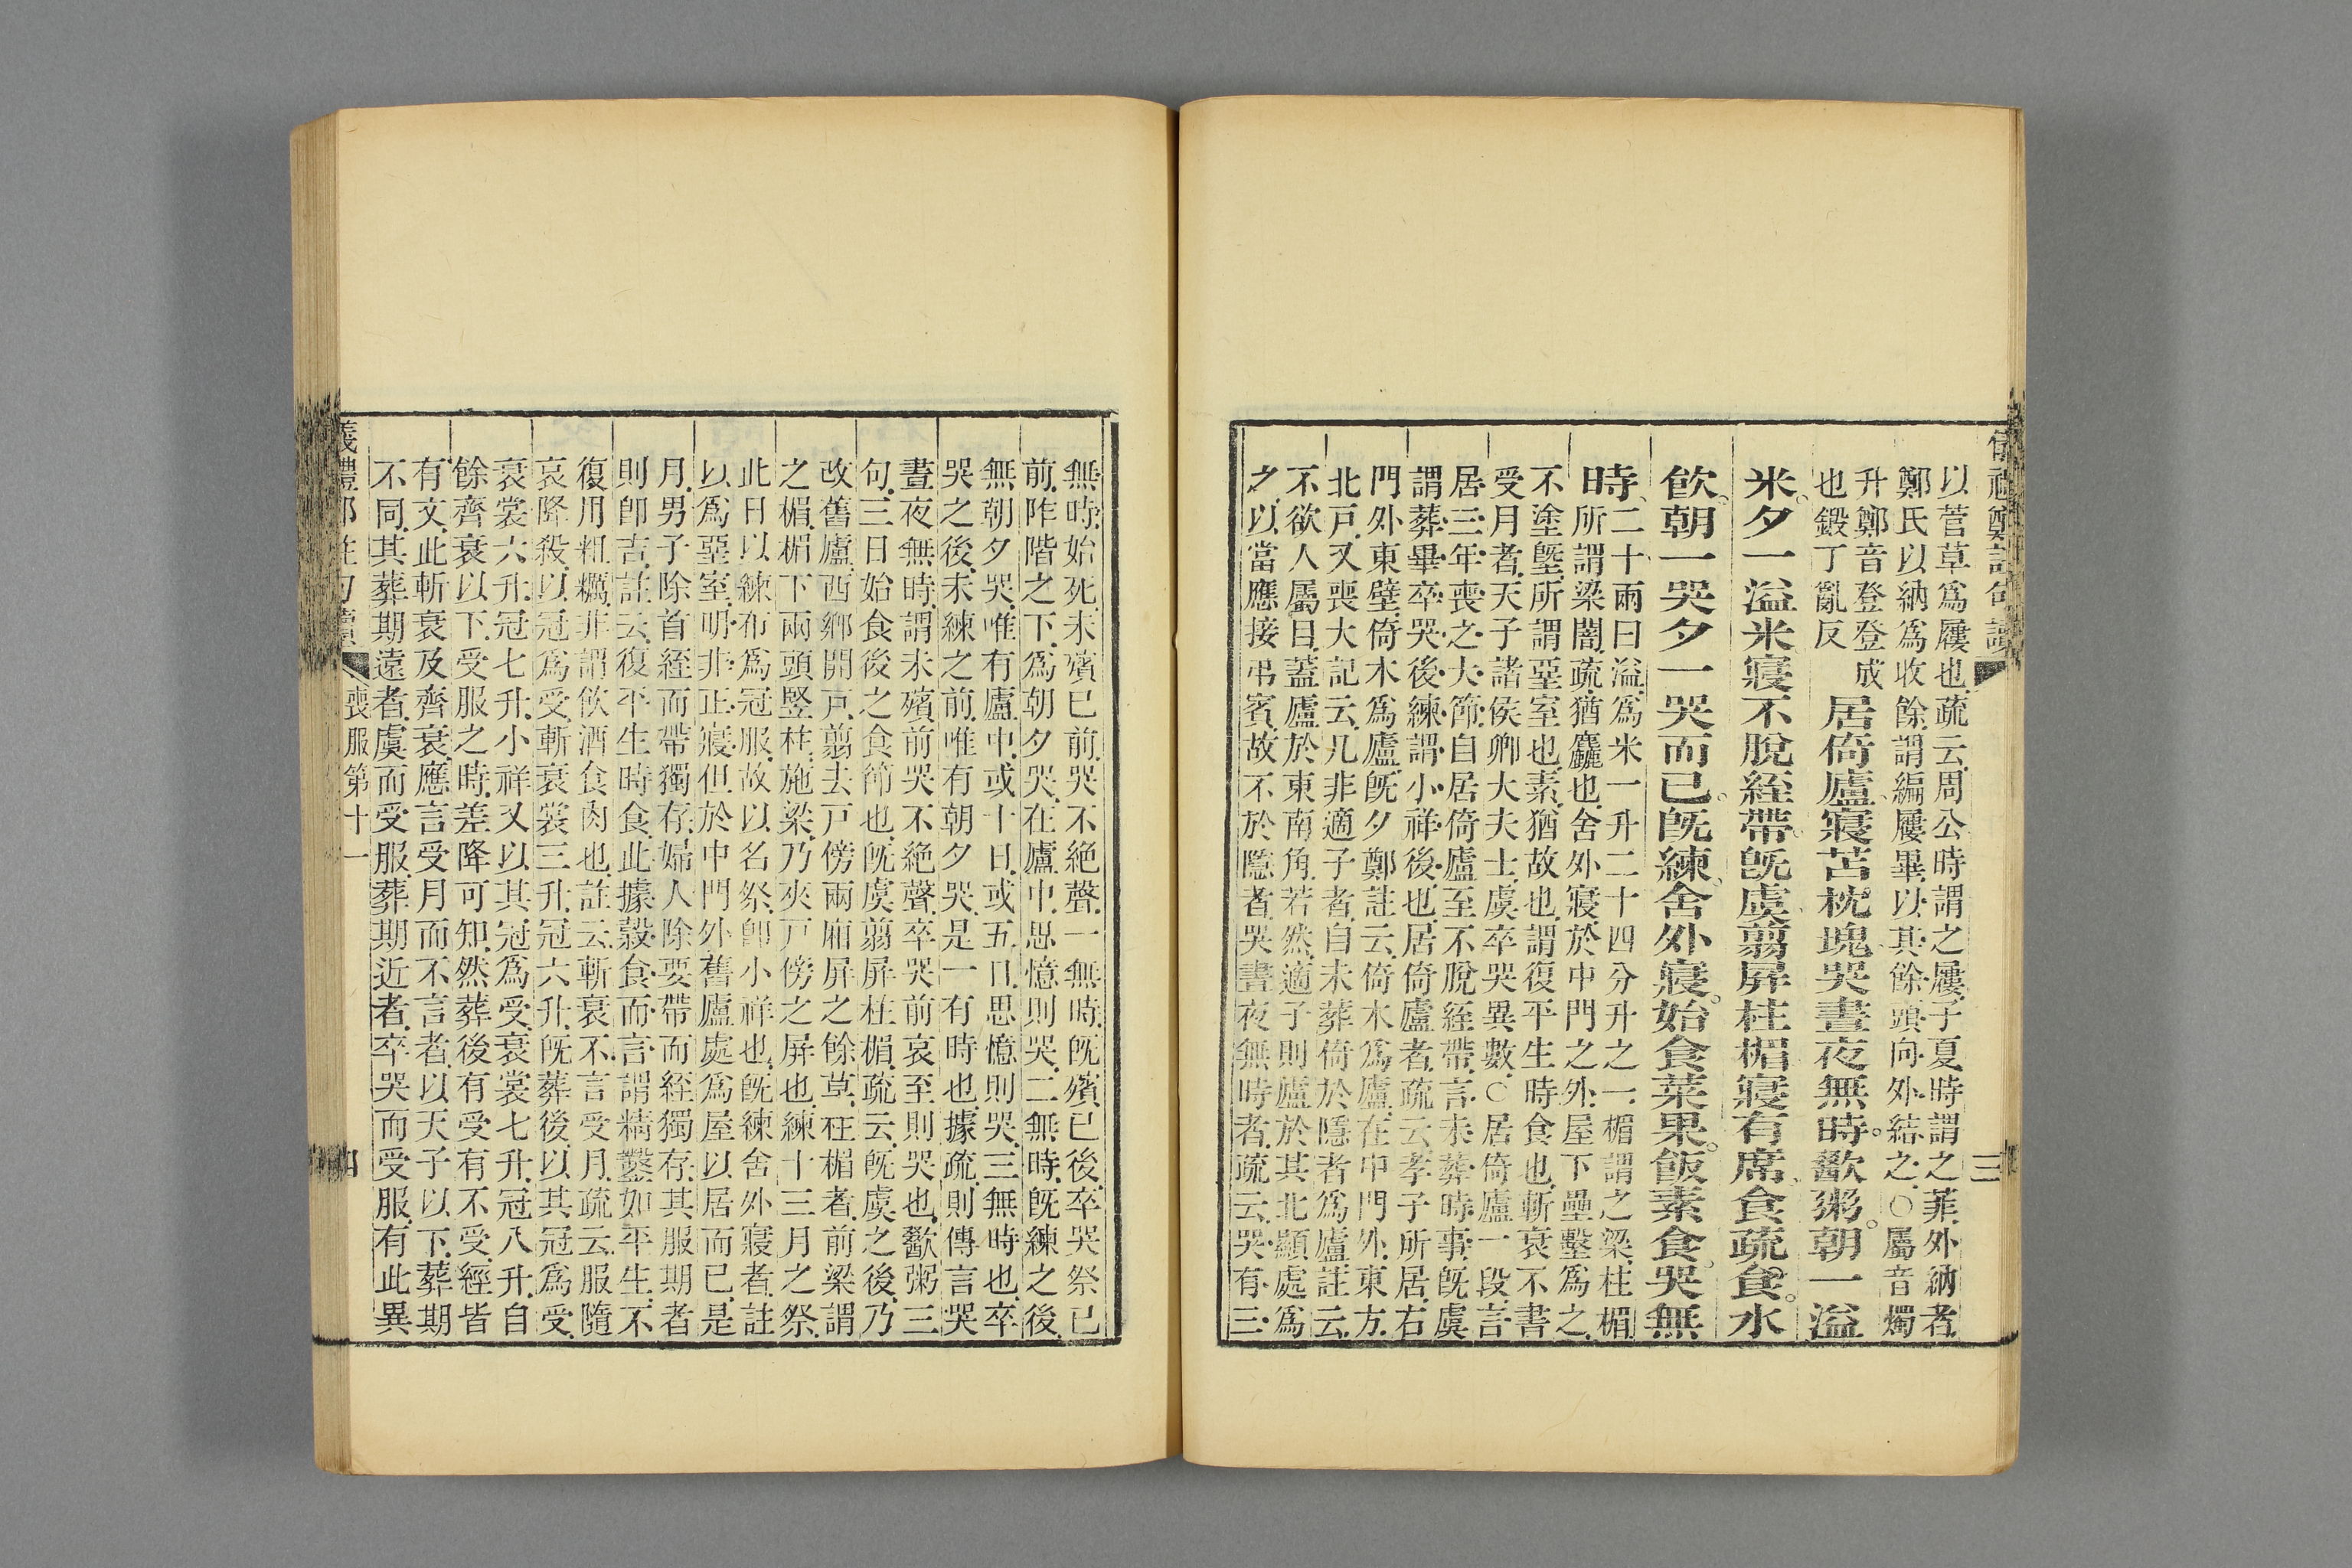 儀禮鄭註句讀
三
以菅草爲屨也疏云周公時謂之屨子夏時謂之菲外納者
鄭氏以納爲收餘謂編屨畢以其餘頭向外結之○屬音燭
升鄭音登登成
也鍛丁亂反
居倚廬寢苫枕塊哭晝夜無時歠粥朝一溢
米夕一溢米寢不脫絰帶既虞翦屏柱楣寢有席食疏食水
飲朝一哭夕一哭而已既練舍外寢始食菜果飯素食哭無
時
二十兩曰溢爲米一升二十四分升之一楣謂之梁柱楣
所謂梁闇疏猶麤也舍外寢於中門之外屋下壘墼爲之
不塗塈所謂堊室也素猶故也謂復平生時食也斬衰不書
受月者天子諸侯卿大夫士虞卒哭異數○居倚廬一段言
居三年喪之大節自居倚廬至不脫絰帶言未葬時事既虞
謂葬畢卒哭後練謂小祥後也居倚廬者疏云孝子所居右
門外東壁倚木爲廬既夕鄭註云倚木爲廬在中門外東方
北戶又喪大記云凡非適子者自未葬倚於隱者爲廬註云
不欲人屬目蓋廬於東南角若然適子則廬於其北顯處爲
之以當應接弔賓故不於隱者哭晝夜無時者疏云哭有三
無時始死未殯已前哭不絶聲一無時既殯已後卒哭祭已
前阼階之下爲朝夕哭在廬中思憶則哭二無時既練之後
無朝夕哭唯有廬中或十日或五日思憶則哭三無時也卒
哭之後未練之前唯有朝夕哭是一有時也據疏則傳言哭
晝夜無時謂未殯前哭不絶聲卒哭前哀至則哭也歠粥三
句三日始食後之食節也既虞翦屏柱楣疏云既虞之後乃
改舊廬西鄉開戶翦去戶傍兩廂屏之餘草柱楣者前梁謂
之楣楣下兩頭竪柱施梁乃夾戶傍之屏也練十三月之祭
此日以練布爲冠服故以名祭卽小祥也既練舍外寢者註
以爲堊室明非正寢但於中門外舊廬處爲屋以居而已是
月男子除首絰而帶獨存婦人除要帶而絰獨存其服期者
則卽吉註云復平生時食此據穀食而言謂精鑿如平生不
復用粗糲非謂飲酒食肉也註云斬衰不言受月疏云服隨
哀降殺以冠爲受斬衰裳三升冠六升既葬後以其冠爲受
衰裳六升冠七升小祥又以其冠爲受衰裳七升冠八升自
餘齊衰以下受服之時差降可知然葬後有受有不受經皆
有文此斬衰及齊衰應言受月而不言者以天子以下葬期
不同其葬期遠者虞而受服葬期近者卒哭而受服有此異
儀禮鄭註句讀
喪服第十一
四